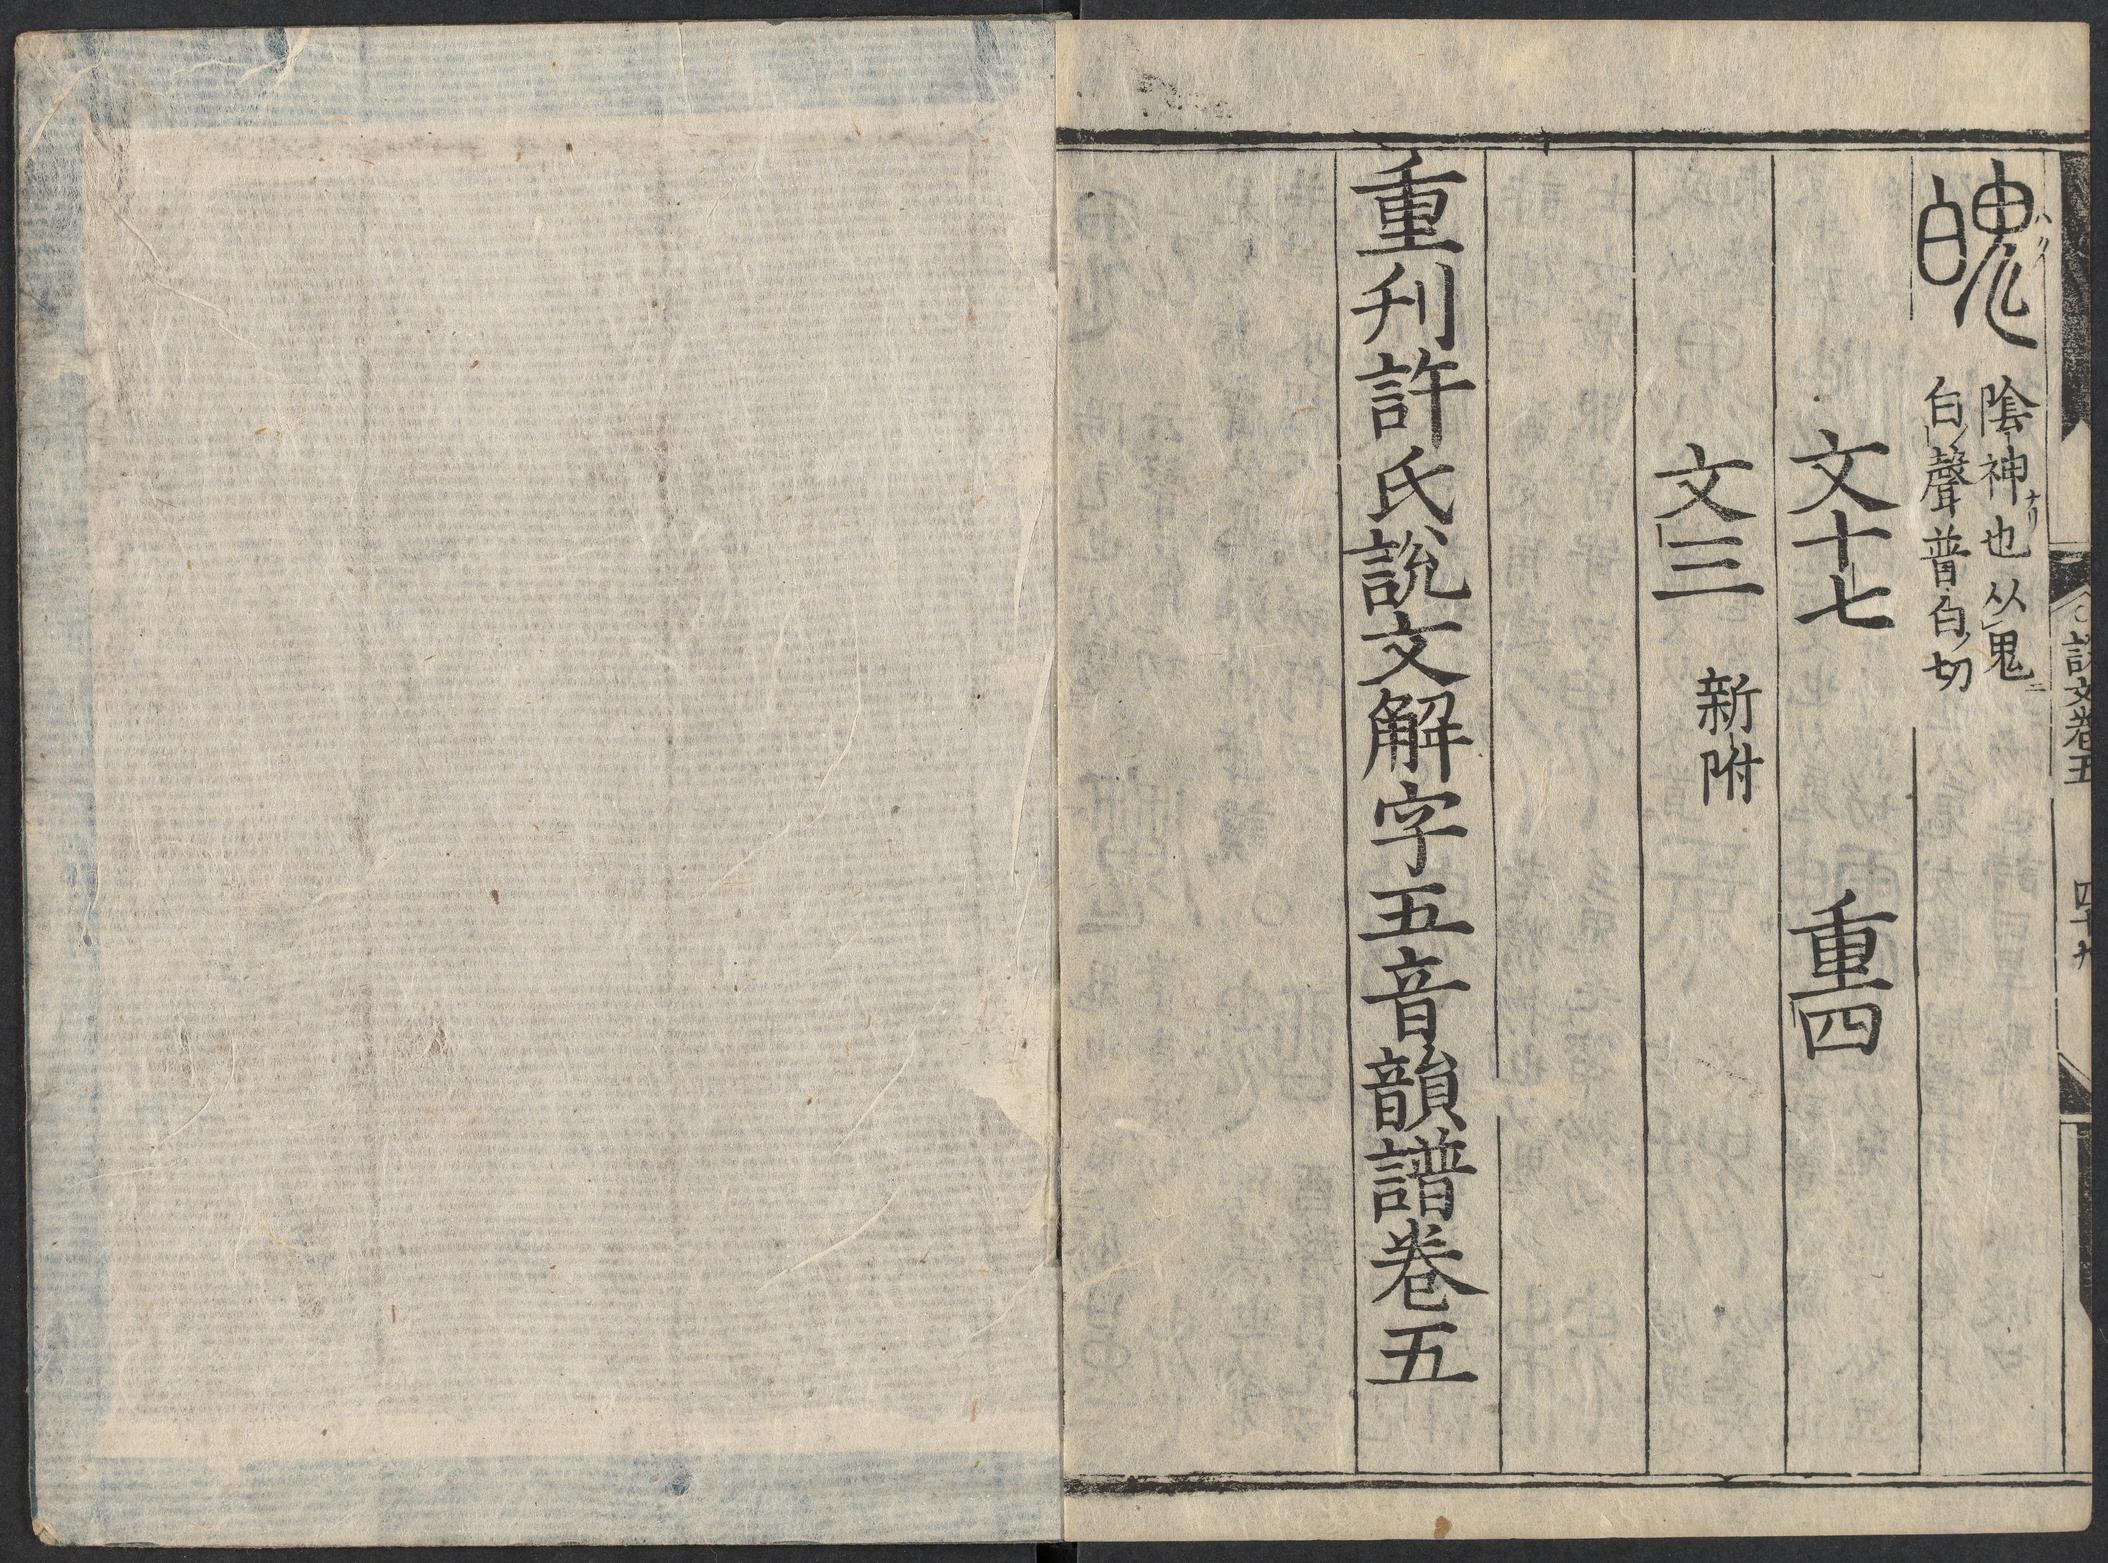 魄
陰神也从鬼
白聲普白切
文十七 重四
文三 新附
重刋許氏說文解字五音韻譜卷五
說文卷五 四十九